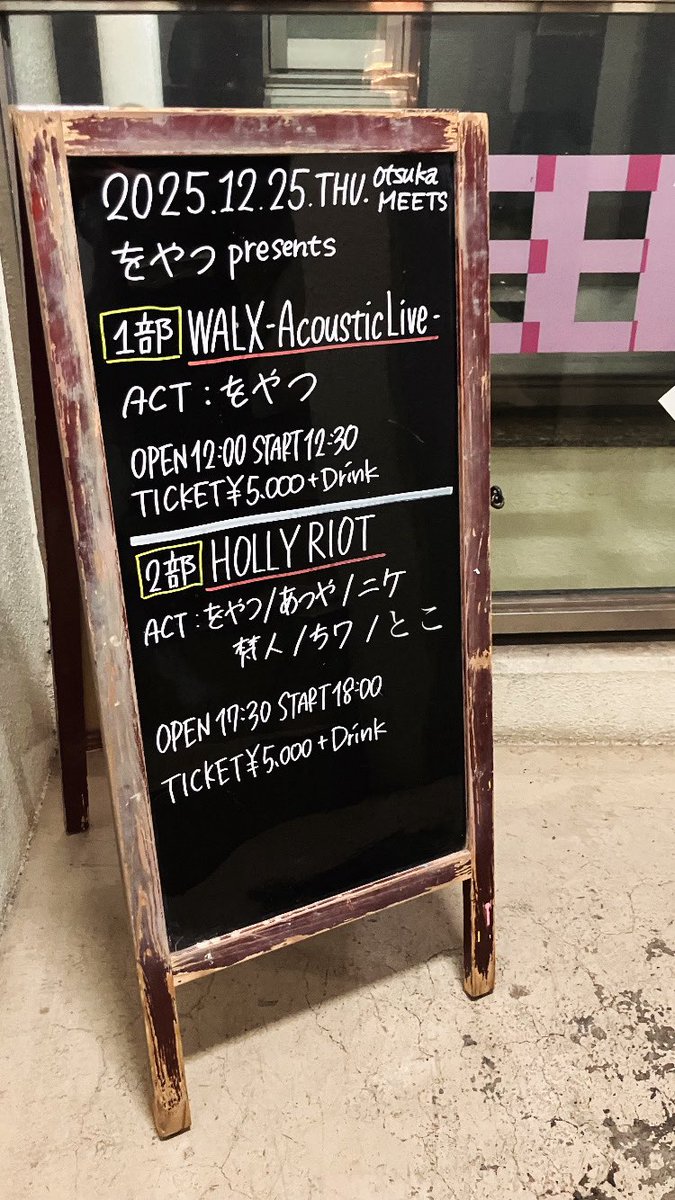 2025.12.25.THU. Otsuka MEETS
をやつ presents
1部 WALX-Acoustic Live-
ACT:をやつ
OPEN 12:00 START 12:30
TICKET ¥5.000+Drink
2部 HOLLY RIOT
ACT:をやつ/あつや/ニケ
人/ちワ/とこ
OPEN 17:30 START 18:00
TICKET ¥5.000+Drink